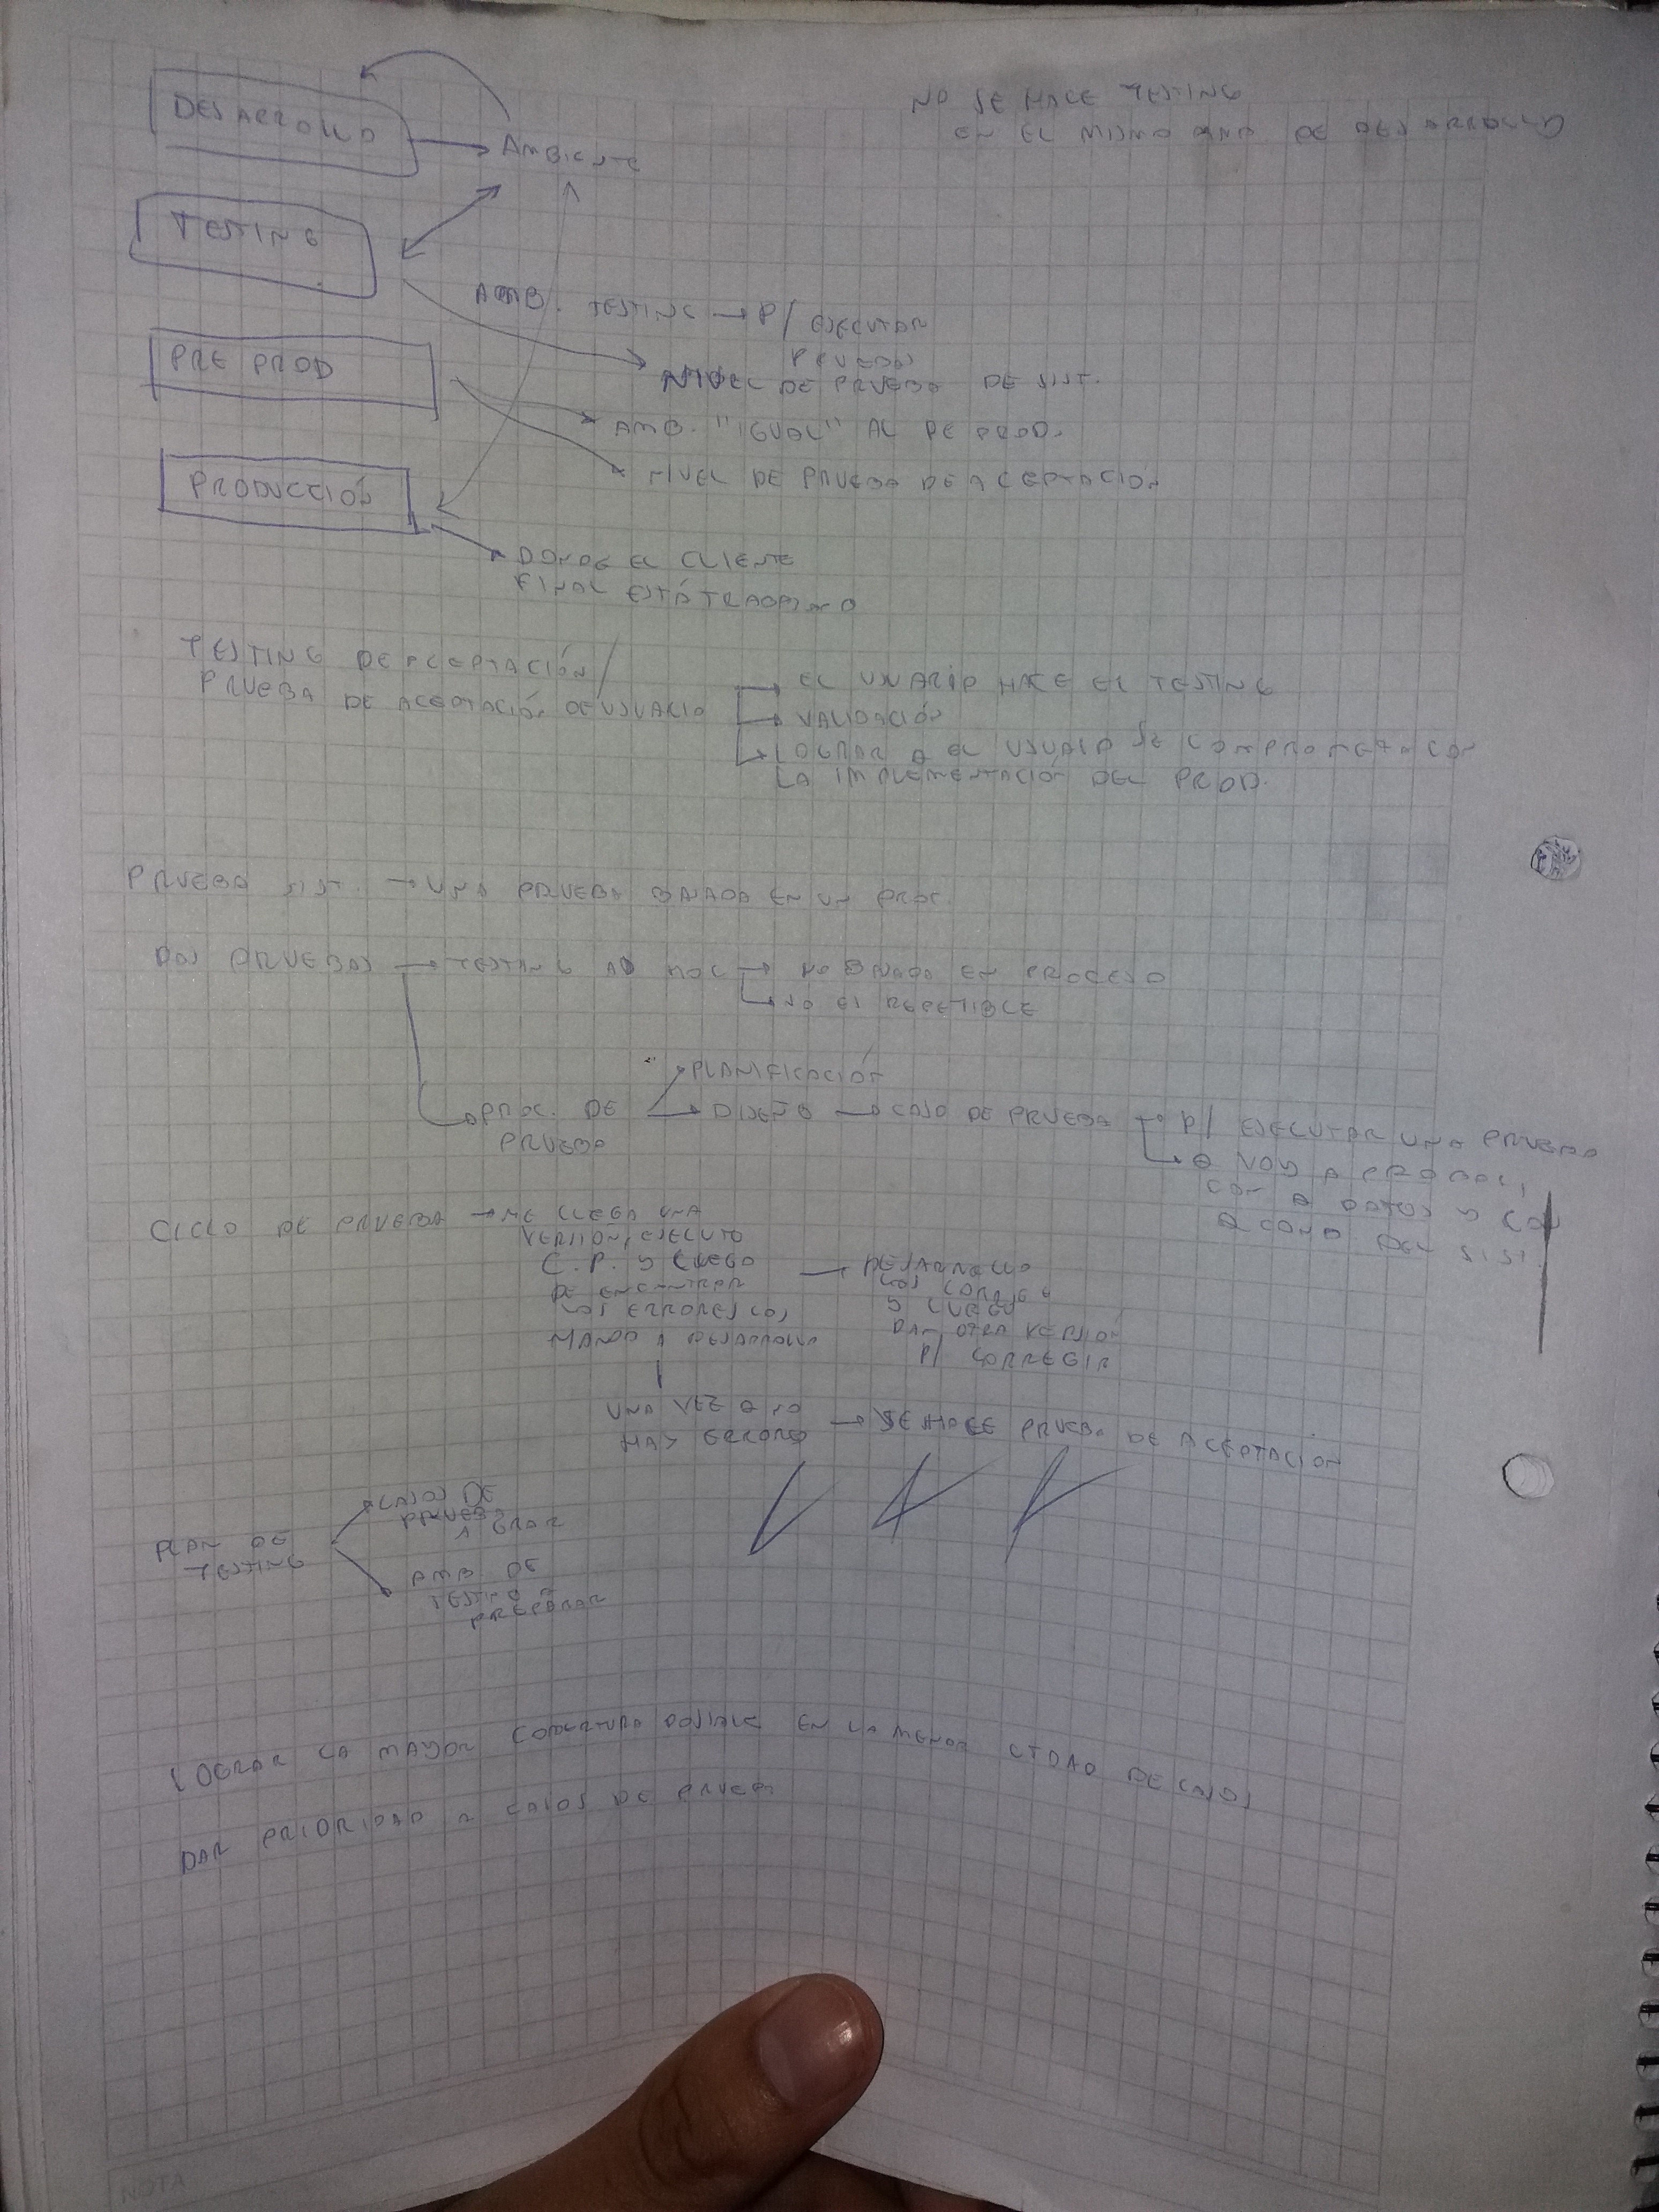 NO SE HACE TESTING
EN EL MISMO AMB DE DESARROLLO
DESARROLLO → AMBIENTE
TESTING
AMB. TESTING → P/ EJECUTAR
PRUEBAS
NIVEL DE PRUEBA DE SIST.
PRE PROD
AMB. "IGUAL" AL DE PROD.
NIVEL DE PRUEBA DE ACEPTACIÓN
PRODUCCIÓN
DONDE EL CLIENTE
FINAL ESTÁ TRABAJANDO
TESTING DE ACEPTACIÓN /
PRUEBA DE ACEPTACIÓN DE USUARIO
→ EL USUARIO HACE EL TESTING
→ VALIDACIÓN
→ LOGRAR Q EL USUARIO SE COMPROMETA CON
LA IMPLEMENTACIÓN DEL PROD.
PRUEBA SIST. → UNA PRUEBA BASADA EN UN PROC.
DOS PRUEBAS → TESTING AD HOC → NO BASADO EN PROCESO
→ NO ES REPETIBLE
→ PLANIFICACIÓN
PROC. DE → DISEÑO → CASO DE PRUEBA → P/ EJECUTAR UNA PRUEBA
PRUEBA
→ Q VOY A PROBAR,
CON Q DATOS Y CON
Q COND DEL SIST.
CICLO DE PRUEBA → ME LLEGA UNA
VERSIÓN, EJECUTO
C.P. Y LUEGO
DE ENCONTRAR
LOS ERRORES LOS
MANDO A DESARROLLO
→ DESARROLLO
LOS CORRIGE
Y LUEGO
DAN OTRA VERSIÓN
P/ CORREGIR
UNA VEZ Q NO
HAY ERRORES → SE HACE PRUEBA DE ACEPTACIÓN
PLAN DE
TESTING
CASOS DE
PRUEBA
AMB DE
TESTING A
PREPARAR
LOGRAR LA MAYOR COBERTURA POSIBLE EN LA MENOR CTDAD DE CASOS
DAR PRIORIDAD A CASOS DE PRUEBA
NOTA